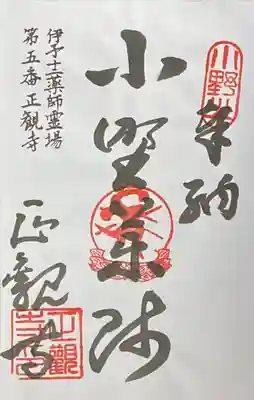 奉納
小野薬師
伊予十二薬師霊場
第五番 正観寺
正觀寺
正觀寺